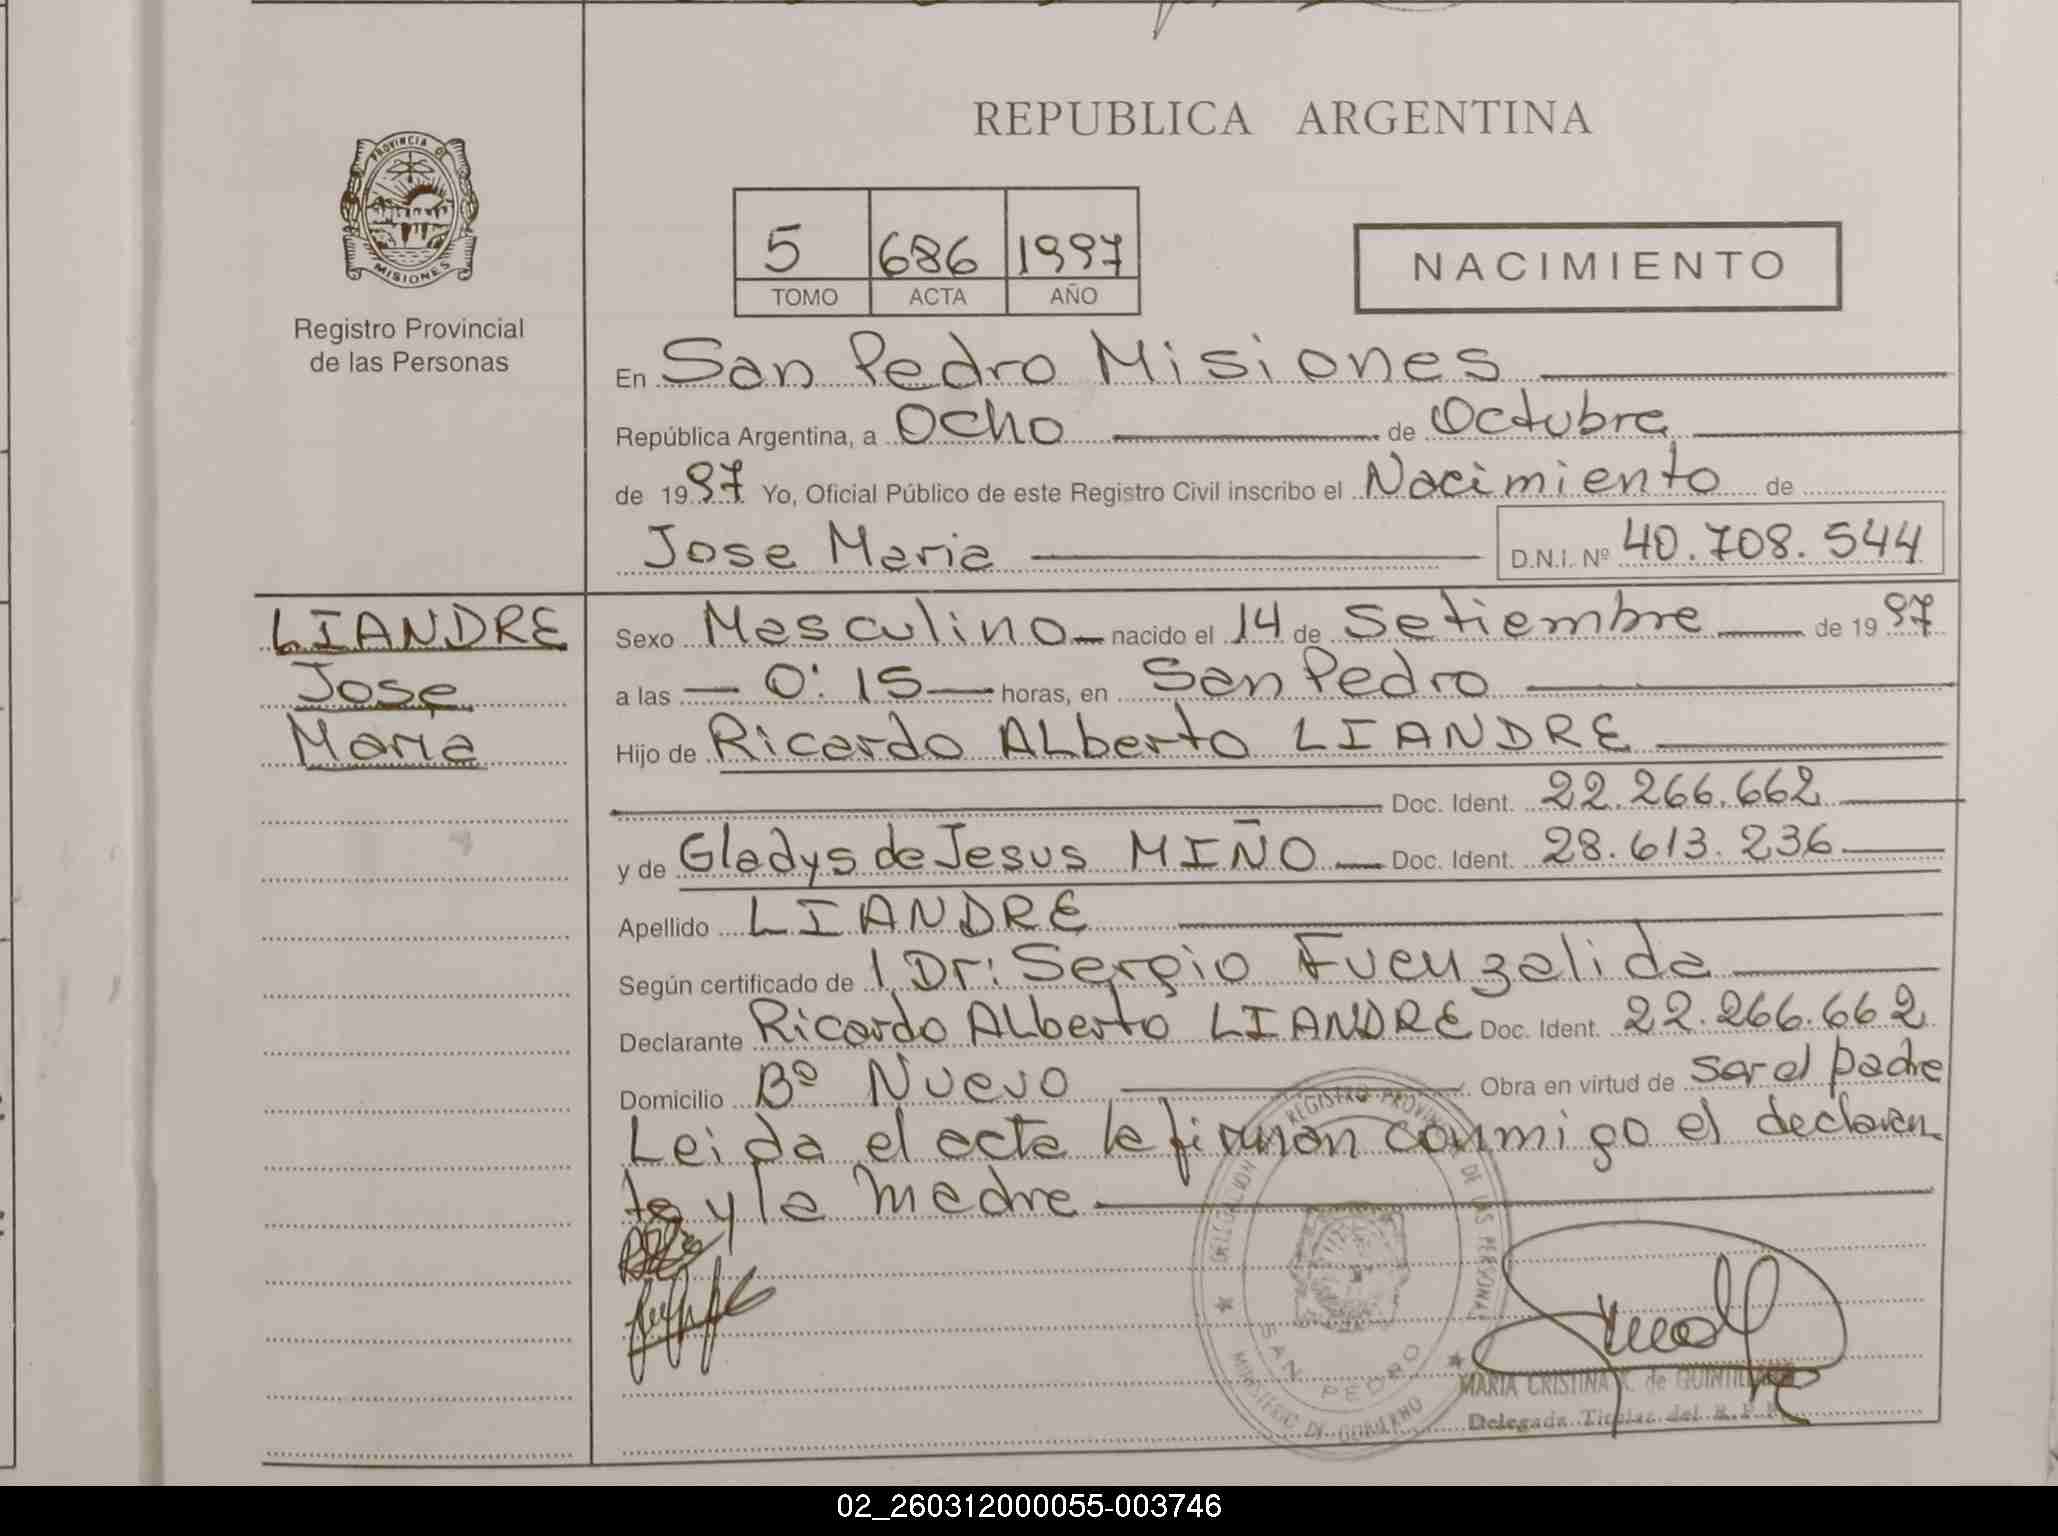 REPUBLICA ARGENTINA
PROVINCIA DE
MISIONES
Registro Provincial
de las Personas
5 686 1997
TOMO ACTA AÑO
NACIMIENTO
En San Pedro Misiones
República Argentina, a Ocho de Octubre
de 1997 Yo, Oficial Público de este Registro Civil inscribo el Nacimiento de
Jose Maria D.N.I. Nº 40.708.544
LIANDRE
Jose
Maria
Sexo Masculino nacido el 14 de Setiembre de 1997
a las 0:15 horas, en San Pedro
Hijo de Ricardo ALberto LIANDRE
Doc. Ident. 22.266.662
y de Gladys de Jesus MIÑO Doc. Ident. 28.613.236
Apellido LIANDRE
Según certificado de 1 Dr: Sergio Fuenzalida
Declarante Ricardo ALberto LIANDRE Doc. Ident. 22.266.662
Domicilio Bº Nuevo Obra en virtud de ser el padre
Leida el acta la firman conmigo el declaran
te y la madre
REGISTRO PROVINCIAL DE LAS PERSONAS
SAN PEDRO
MINISTERIO DE GOBIERNO
MARIA CRISTINA de
Delegada Titular del R.P.P.
02_260312000055-003746